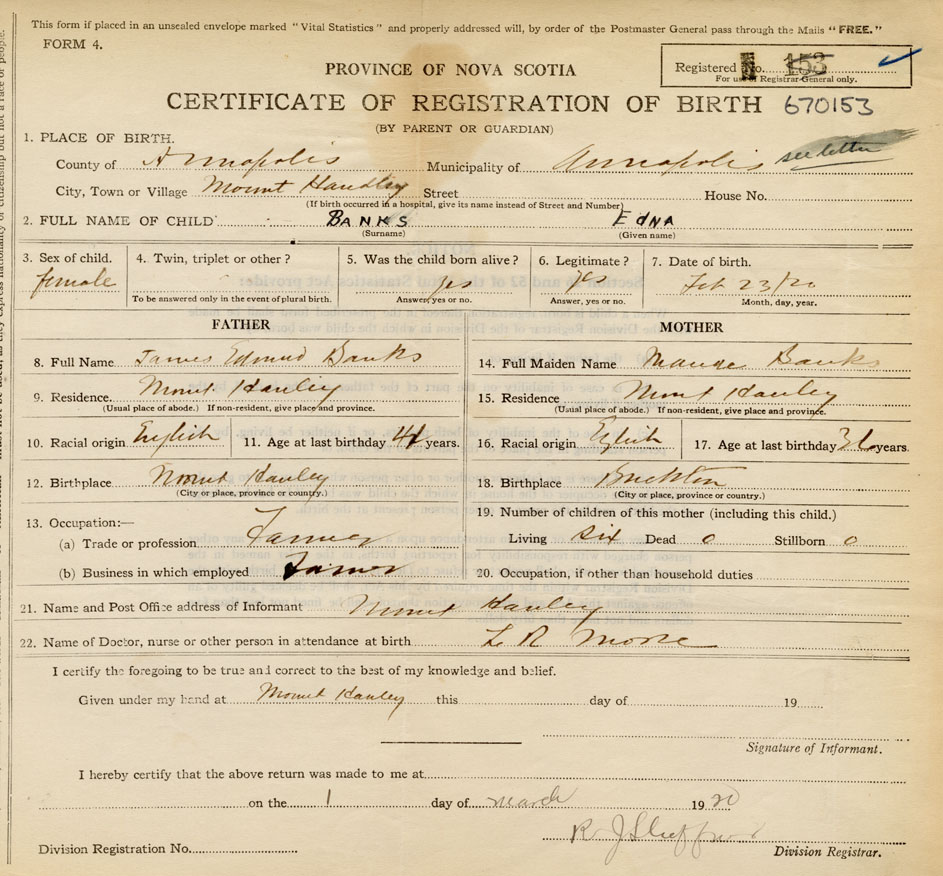 This form if placed in an unsealed envelope marked "Vital Statistics" and properly addressed will, by order of the Postmaster General pass through the Mails "FREE."
FORM 4.
Registered No. 153
For use of Registrar-General only.
PROVINCE OF NOVA SCOTIA
CERTIFICATE OF REGISTRATION OF BIRTH 670153
(BY PARENT OR GUARDIAN)
1. PLACE OF BIRTH.
County of Annapolis Municipality of Annapolis see letter
City, Town or Village Mount Handley Street House No.
(If birth occurred in a hospital, give its name instead of Street and Number)
2. FULL NAME OF CHILD BANKS EDNA
(Surname) (Given name)
3. Sex of child. 4. Twin, triplet or other? 5. Was the child born alive? 6. Legitimate? 7. Date of birth.
female yes yes Feb 23/20
To be answered only in the event of plural birth. Answer, yes or no. Answer, yes or no. Month, day, year.
FATHER MOTHER
8. Full Name James Edmund Banks 14. Full Maiden Name Banks
9. Residence. Mount Hanley 15. Residence Mount Hanley
(Usual place of abode.) If non-resident, give place and province. (Usual place of abode.) If non-resident, give place and province.
10. Racial origin English 11. Age at last birthday years. 16. Racial origin English 17. Age at last birthday years.
12. Birthplace Mount Hanley 18. Birthplace
(City or place, province or country.) (City or place, province or country.)
13. Occupation:— 19. Number of children of this mother (including this child.)
(a) Trade or profession Farmer Living six Dead 0 Stillborn 0
(b) Business in which employed Farmer 20. Occupation, if other than household duties
21. Name and Post Office address of Informant Mount Hanley
22. Name of Doctor, nurse or other person in attendance at birth L R Morse
I certify the foregoing to be true and correct to the best of my knowledge and belief.
Given under my hand at Mount Hanley this day of 19
Signature of Informant.
I hereby certify that the above return was made to me at
on the 1 day of March 1920
R J
Division Registration No. Division Registrar.